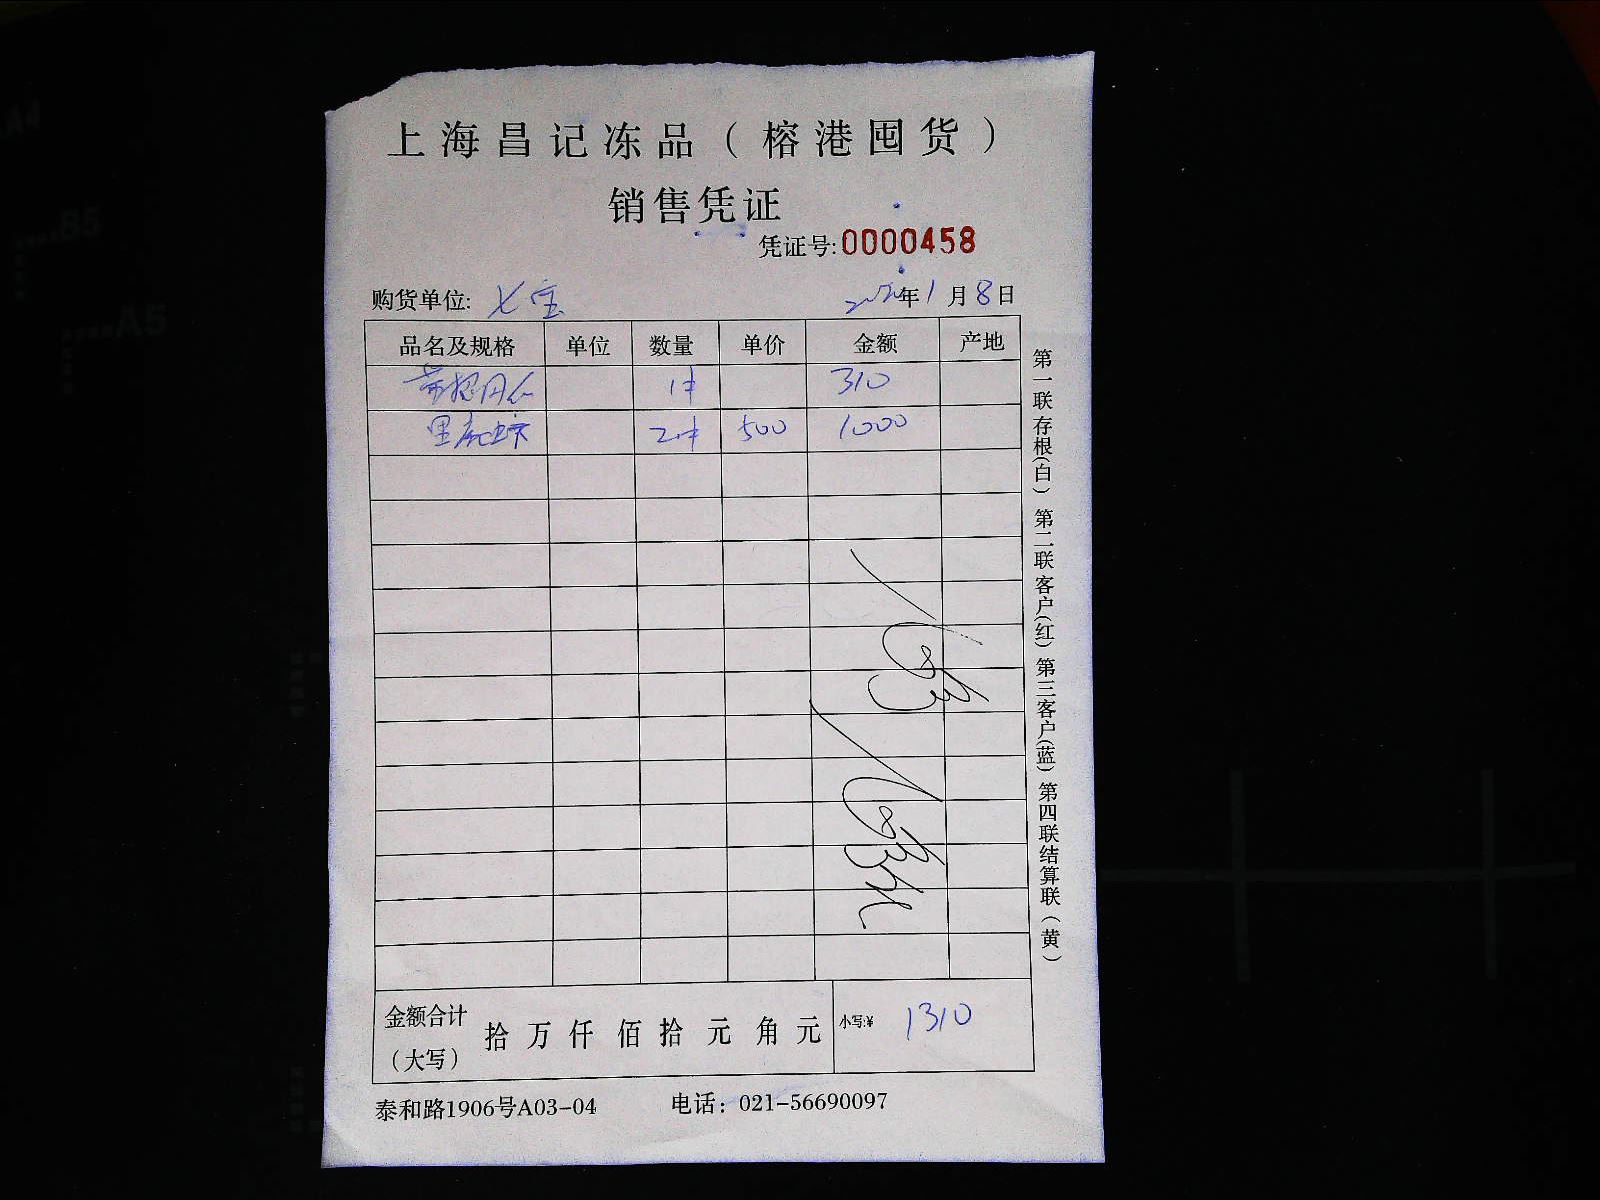 上海昌记冻品（榕港囤货）
销售凭证
凭证号:0000458
购货单位: 七宝 年1月8日
品名及规格 单位 数量 单价 金额 产地
1件 310
黑虎虾 2件 500 1000
金额合计（大写） 拾 万 仟 佰 拾 元 角 元 小写:¥ 1310
泰和路1906号A03-04 电话：021-56690097
第一联存根(白) 第二联客户(红) 第三客户(蓝) 第四联结算联(黄)
A4
B5
A5